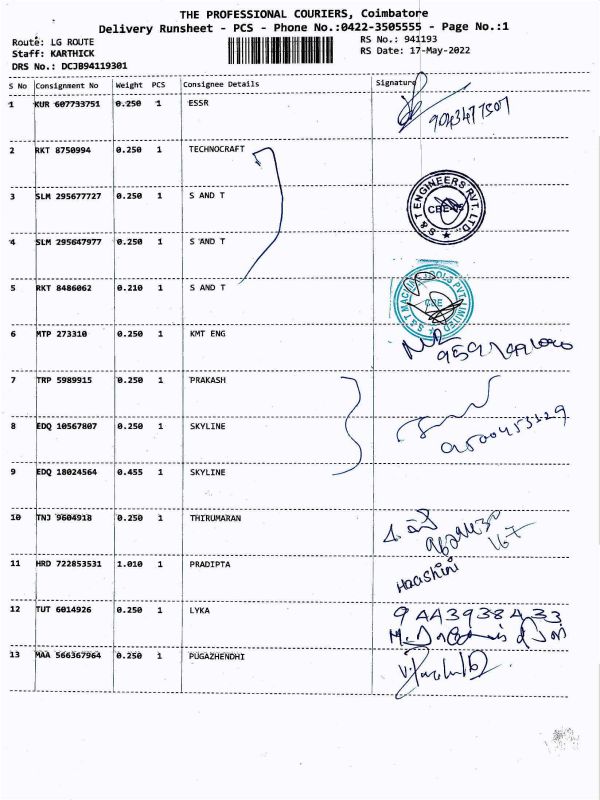 THE PROFESSIONAL COURIERS, Coimbatore
Delivery Runsheet - PCS - Phone No.:0422-3505555 - Page No.:1
Route: LG ROUTE
Staff: KARTHICK
DRS No.: DCJB94119301
RS No.: 941193
RS Date: 17-May-2022
S No Consignment No Weight PCS Consignee Details Signature
1 KUR 607733751 0.250 1 ESSR
9043477507
2 RKT 8750994 0.250 1 TECHNOCRAFT
3 SLM 295677727 0.250 1 S AND T
S & T ENGINEERS PVT. LTD.
4 SLM 295647977 0.250 1 S AND T
5 RKT 8486062 0.210 1 S AND T
S & T MACHINE TOOLS PVT LIMITED
CBE
6 MTP 273310 0.250 1 KMT ENG
7 TRP 5989915 0.250 1 PRAKASH
8 EDQ 10567807 0.250 1 SKYLINE
9 EDQ 18024564 0.455 1 SKYLINE
10 TNJ 9604918 0.250 1 THIRUMARAN
167
11 HRD 722853531 1.010 1 PRADIPTA
Haashini
12 TUT 6014926 0.250 1 LYKA
9443938433
13 MAA 566367964 0.250 1 PUGAZHENDHI